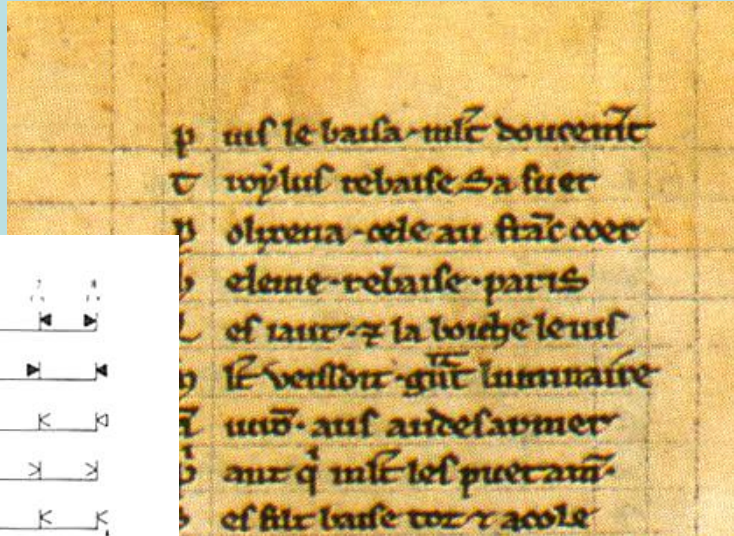 p uiſ le baiſa·ml̄t doucem̄t
t roẏluſ rebaiſe Sa ſuer
p olixena·cele au frāc coer
h eleine·rebaiſe·pariS
L eſ iauz·⁊ la boiche le uiſ
l̄t veiſſoiz· luminaire
auſ au deſarmer
ml̄t leſ puet am̄·
eſ filz baiſe toz ⁊ acole